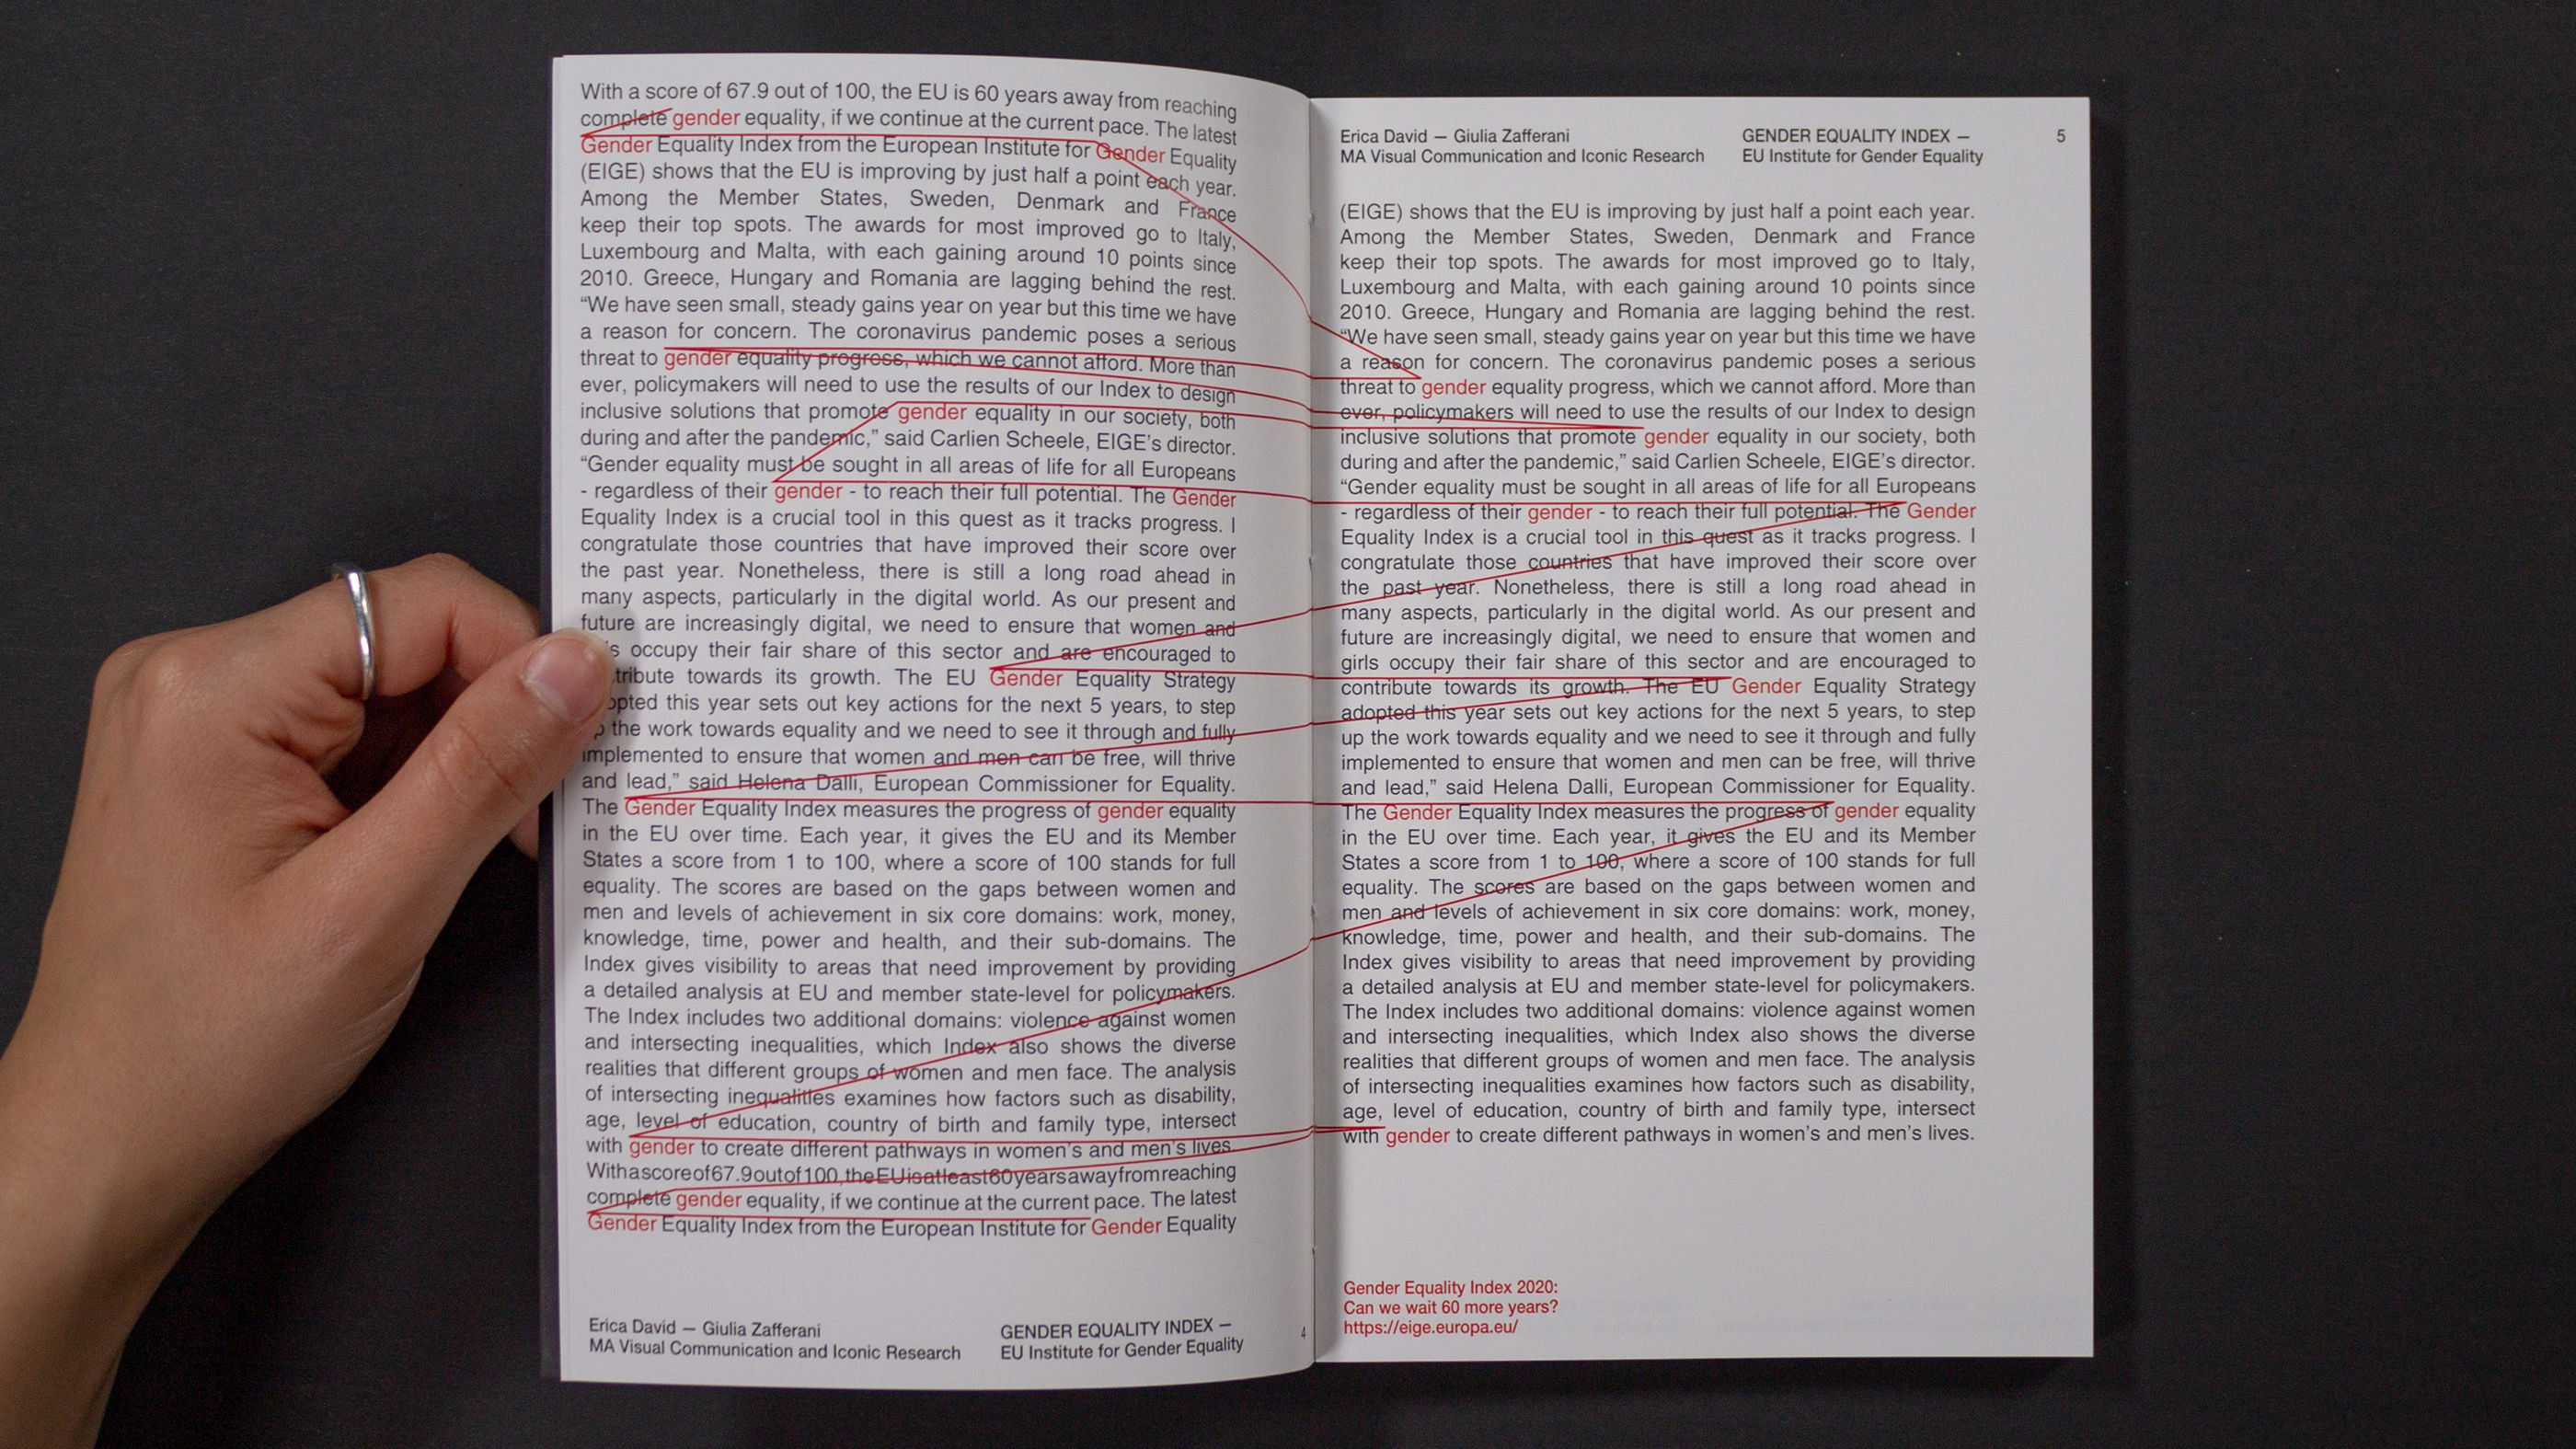 With a score of 67.9 out of 100, the EU is 60 years away from reaching
complete gender equality, if we continue at the current pace. The latest
Gender Equality Index from the European Institute for Gender Equality
(EIGE) shows that the EU is improving by just half a point each year.
Among the Member States, Sweden, Denmark and France
keep their top spots. The awards for most improved go to Italy,
Luxembourg and Malta, with each gaining around 10 points since
2010. Greece, Hungary and Romania are lagging behind the rest.
“We have seen small, steady gains year on year but this time we have
a reason for concern. The coronavirus pandemic poses a serious
threat to gender equality progress, which we cannot afford. More than
ever, policymakers will need to use the results of our Index to design
inclusive solutions that promote gender equality in our society, both
during and after the pandemic,” said Carlien Scheele, EIGE’s director.
“Gender equality must be sought in all areas of life for all Europeans
- regardless of their gender - to reach their full potential. The Gender
Equality Index is a crucial tool in this quest as it tracks progress. I
congratulate those countries that have improved their score over
the past year. Nonetheless, there is still a long road ahead in
many aspects, particularly in the digital world. As our present and
future are increasingly digital, we need to ensure that women and
occupy their fair share of this sector and are encouraged to
towards its growth. The EU Gender Equality Strategy
this year sets out key actions for the next 5 years, to step
the work towards equality and we need to see it through and fully
implemented to ensure that women and men can be free, will thrive
and lead,” said Helena Dalli, European Commissioner for Equality.
The Gender Equality Index measures the progress of gender equality
in the EU over time. Each year, it gives the EU and its Member
States a score from 1 to 100, where a score of 100 stands for full
equality. The scores are based on the gaps between women and
men and levels of achievement in six core domains: work, money,
knowledge, time, power and health, and their sub-domains. The
Index gives visibility to areas that need improvement by providing
a detailed analysis at EU and member state-level for policymakers.
The Index includes two additional domains: violence against women
and intersecting inequalities, which Index also shows the diverse
realities that different groups of women and men face. The analysis
of intersecting inequalities examines how factors such as disability,
age, level of education, country of birth and family type, intersect
with gender to create different pathways in women’s and men’s lives.
With a score of 67.9 out of 100, the EU is at least 60 years away from reaching
complete gender equality, if we continue at the current pace. The latest
Gender Equality Index from the European Institute for Gender Equality
Erica David — Giulia Zafferani
MA Visual Communication and Iconic Research
GENDER EQUALITY INDEX —
EU Institute for Gender Equality
4
Erica David — Giulia Zafferani
MA Visual Communication and Iconic Research
GENDER EQUALITY INDEX —
EU Institute for Gender Equality
5
(EIGE) shows that the EU is improving by just half a point each year.
Among the Member States, Sweden, Denmark and France
keep their top spots. The awards for most improved go to Italy,
Luxembourg and Malta, with each gaining around 10 points since
2010. Greece, Hungary and Romania are lagging behind the rest.
“We have seen small, steady gains year on year but this time we have
a reason for concern. The coronavirus pandemic poses a serious
threat to gender equality progress, which we cannot afford. More than
ever, policymakers will need to use the results of our Index to design
inclusive solutions that promote gender equality in our society, both
during and after the pandemic,” said Carlien Scheele, EIGE’s director.
“Gender equality must be sought in all areas of life for all Europeans
- regardless of their gender - to reach their full potential. The Gender
Equality Index is a crucial tool in this quest as it tracks progress. I
congratulate those countries that have improved their score over
the past year. Nonetheless, there is still a long road ahead in
many aspects, particularly in the digital world. As our present and
future are increasingly digital, we need to ensure that women and
girls occupy their fair share of this sector and are encouraged to
contribute towards its growth. The EU Gender Equality Strategy
adopted this year sets out key actions for the next 5 years, to step
up the work towards equality and we need to see it through and fully
implemented to ensure that women and men can be free, will thrive
and lead,” said Helena Dalli, European Commissioner for Equality.
The Gender Equality Index measures the progress of gender equality
in the EU over time. Each year, it gives the EU and its Member
States a score from 1 to 100, where a score of 100 stands for full
equality. The scores are based on the gaps between women and
men and levels of achievement in six core domains: work, money,
knowledge, time, power and health, and their sub-domains. The
Index gives visibility to areas that need improvement by providing
a detailed analysis at EU and member state-level for policymakers.
The Index includes two additional domains: violence against women
and intersecting inequalities, which Index also shows the diverse
realities that different groups of women and men face. The analysis
of intersecting inequalities examines how factors such as disability,
age, level of education, country of birth and family type, intersect
with gender to create different pathways in women’s and men’s lives.
Gender Equality Index 2020:
Can we wait 60 more years?
https://eige.europa.eu/